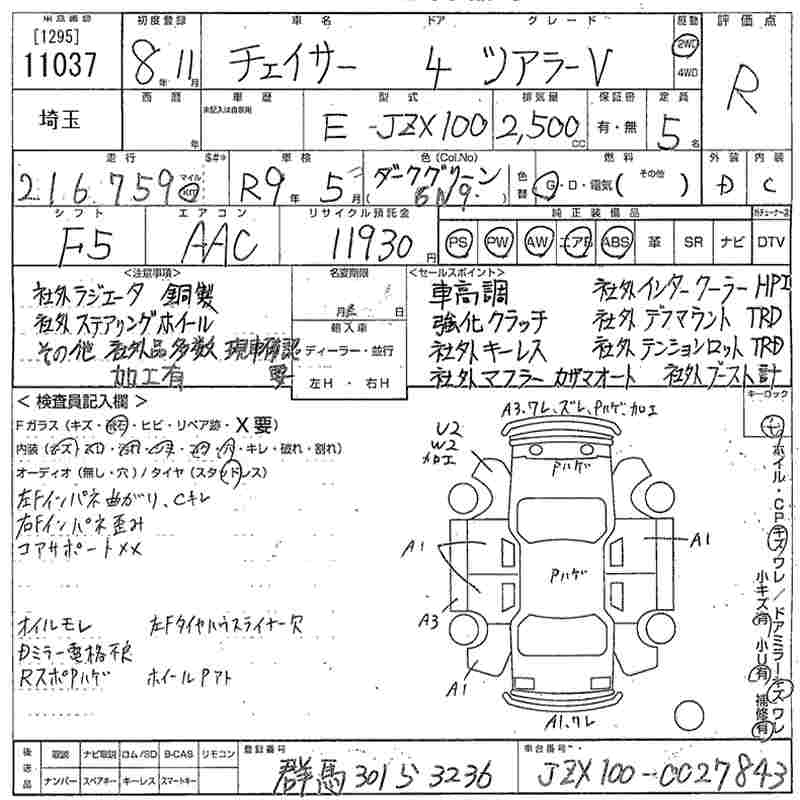 [1295]
11037
初度登録
8年11月
車名
チェイサー
ドア
4
グレード
ツアラーV
駆動
2WD
4WD
評価点
R
埼玉
西暦
年
車歴
未記入は自家用
型式
E-JZX100
排気量
2,500CC
保証書
有・無
定員
5名
走行
216,759
マイル
$#*
車検
R9年5月
色(Col.No)
ダークグリーン
(6N9.)
色替
燃料
G・D・電気( その他 )
外装
D
内装
C
シフト
F5
エアコン
AAC
リサイクル預託金
11930円
純正装備品
PS PW AW エアB ABS 革 SR ナビ DTV
<注意事項>
社外ラジエータ 銅製
社外ステアリングホイール
その他 社外品多数 現車確認要
加工有
名変期限
月 日
輸入車
ディーラー・並行
左H・右H
<セールスポイント>
車高調 社外インタークーラーHPI
強化クラッチ 社外デフマウントTRD
社外キーレス 社外テンションロットTRD
社外マフラーカザマオート 社外ブースト計
キーロック
<検査員記入欄>
Fガラス(キズ・飛石・ヒビ・リペア跡・X要)
・キレ・破れ・割れ)
オーディオ(無し・穴)/タイヤ(スタッドレス)
左Fインパネ曲がり、Cキレ
右Fインパネ歪み
コアサポートXX
オイルモレ 左Fタイヤハウスライナー欠
Dミラー電格不良
RスポPハゲ ホイールPアト
A3.ワレ、ズレ、Pハゲ.加工
U2
W2
加工
Pハゲ
A1
A1
Pハゲ
A3
A1
A1.ワレ
ホイル・CPキズワレ/ドアミラーキズワレ
小キズ有 小U有 補修有
後送品
取説 ナビ取説 ロム/SD B-CAS リモコン
ナンバー スペアキー キーレス スマートキー
登録番号
群馬301ら3236
車台番号
JZX100-0027843